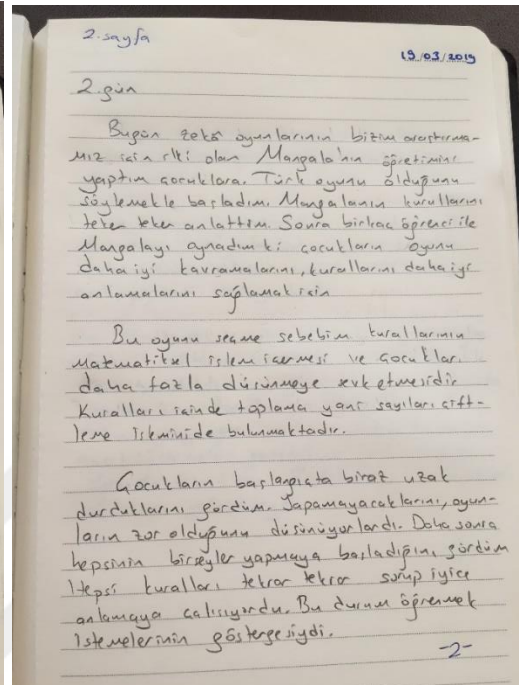 2.sayfa
19/03/2019
2.gün
Bugün zeka oyunlarının bizim araştırma-
mız için ilki olan Mangala'nın öğretimini
yaptım çocuklara. Türk oyunu olduğunu
söylemekle başladım. Mangalanın kurullarını
teker teker anlattım. Sonra birkaç öğrenci ile
Mangalayı oynadım ki çocukların oyunu
daha iyi kavramalarını, kurallarını daha iyi
anlamalarını sağlamak için
Bu oyunu seçme sebebim kurallarının
matematiksel işlem içermesi ve çocukları
daha fazla düşünmeye sevk etmesidir.
Kuralları içinde toplama yani sayıları çift-
leme işleminide bulunmaktadır.
Çocukların başlangıçta biraz uzak
durduklarını gördüm. Yapamayacaklarını, oyun-
ların zor olduğunu düşünüyorlardı. Daha sonra
hepsinin birşeyler yapmaya başladığını gördüm
Hepsi kuralları tekrar tekrar sorup iyice
anlamaya çalışıyordu. Bu durum öğrenmek
istemelerinin göstergesiydi.
-2-